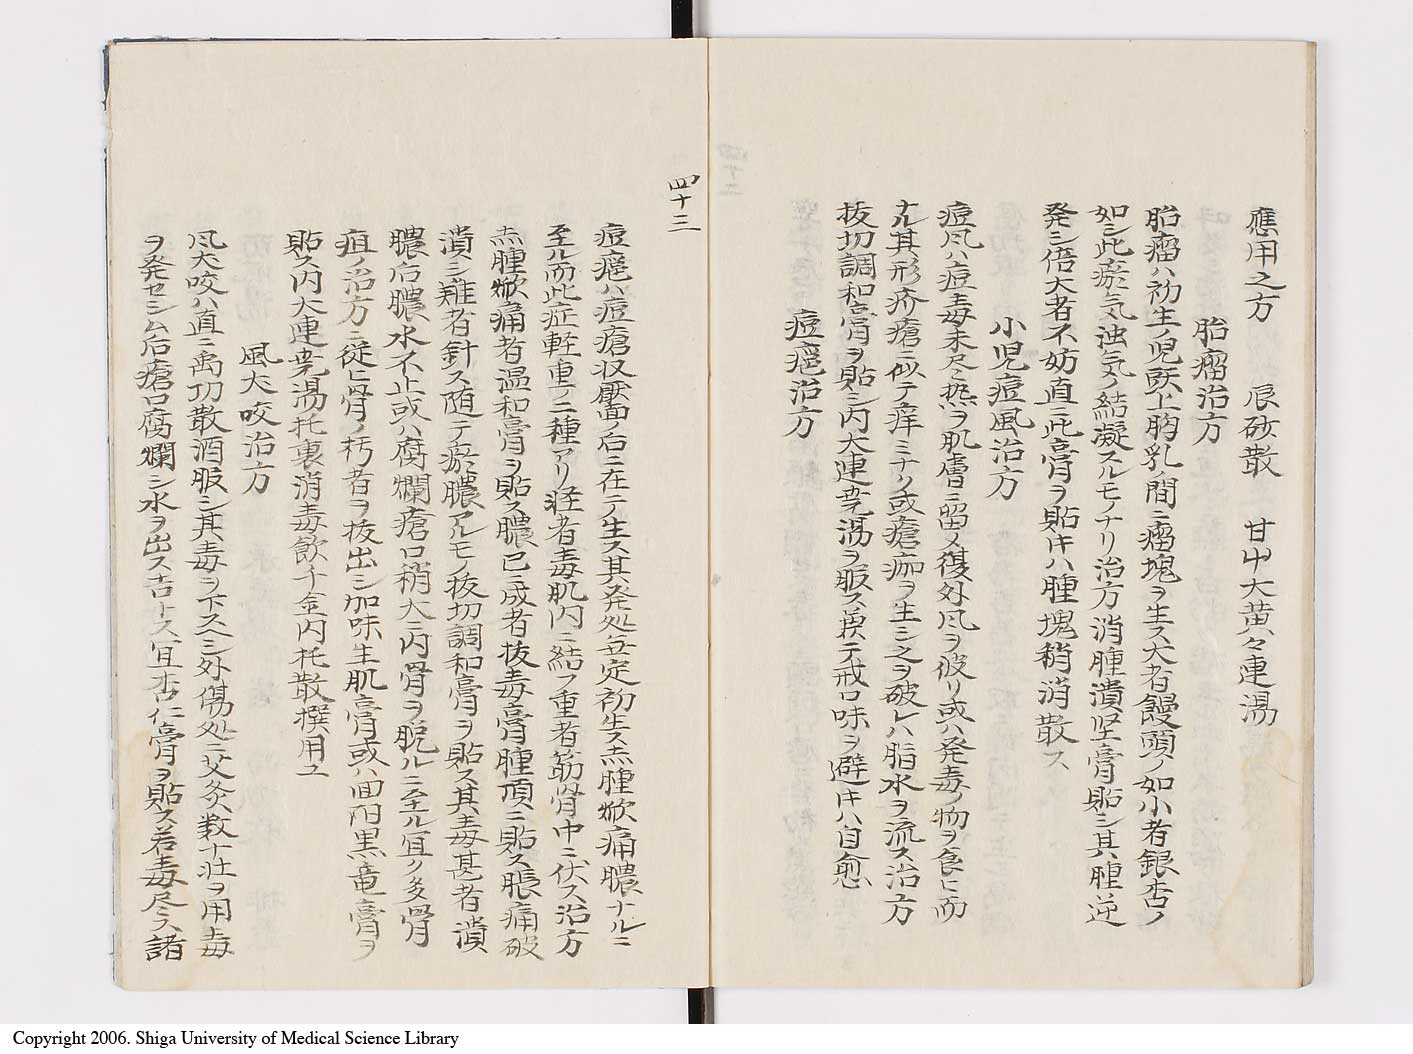 應用之方　辰砂散　甘中大黄々連湯
胎瘤治方
胎瘤ハ初生ノ児頭上胸乳ノ間ニ瘤塊ヲ生ス大者饅頭ノ如小者銀杏ノ
如シ此瘀気浊気ノ結凝スルモノナリ治方消腫潰坚膏貼シ其腫逆
発シ倍大者不妨直ニ此膏ヲ貼キハ腫塊稍消散ス
小児痘風治方
痘风ハ痘毒未尽熱ヲ肌膚ニ留メ復外风ヲ被リ或ハ発毒ノ物ヲ食ヒ而
ナル其形疥瘡ニ似テ痒ミナリ或瘡痂ヲ生シ之ヲ破レハ脂水ヲ流ス治方
抜切調和膏ヲ貼シ内大連翹湯ヲ服ス兼テ戒口味ヲ避キハ自愈
痘瘢治方
四十三
痘瘢ハ痘瘡収靨ノ后ニ在テ生ス其発処無定初生ス赤腫焮痛膿ナルニ
至ル而此症軽重ノ二種アリ軽者毒肌内ニ結フ重者筋骨中ニ伏ス治方
赤腫焮痛者温和膏ヲ貼ス膿已ニ成者抜毒膏腫頂ニ貼ス脹痛破
潰シ難者針ス随テ瘀膿アルモノ抜切調和膏ヲ貼ス其毒甚者潰
膿后膿水不止或ハ腐爛瘡口稍大ニ内骨ヲ脱ルニ至ル宜ク多骨
疽ノ治方ニ従ヒ骨ノ朽者ヲ抜出シ加味生肌膏或ハ回陽黒竜膏ヲ
貼ス内大連翹湯托裏消毒飲千金内托散撰用ユ
風犬咬治方
风犬咬ハ直ニ禹功散酒服シ其毒ヲ下スヘシ外傷処ニ艾灸数十壮ヲ用毒
ヲ発セシム后瘡口腐爛シ水ヲ出ス吉トス宜杏仁膏ヲ貼ス若毒尽ス諸
Copyright 2006. Shiga University of Medical Science Library